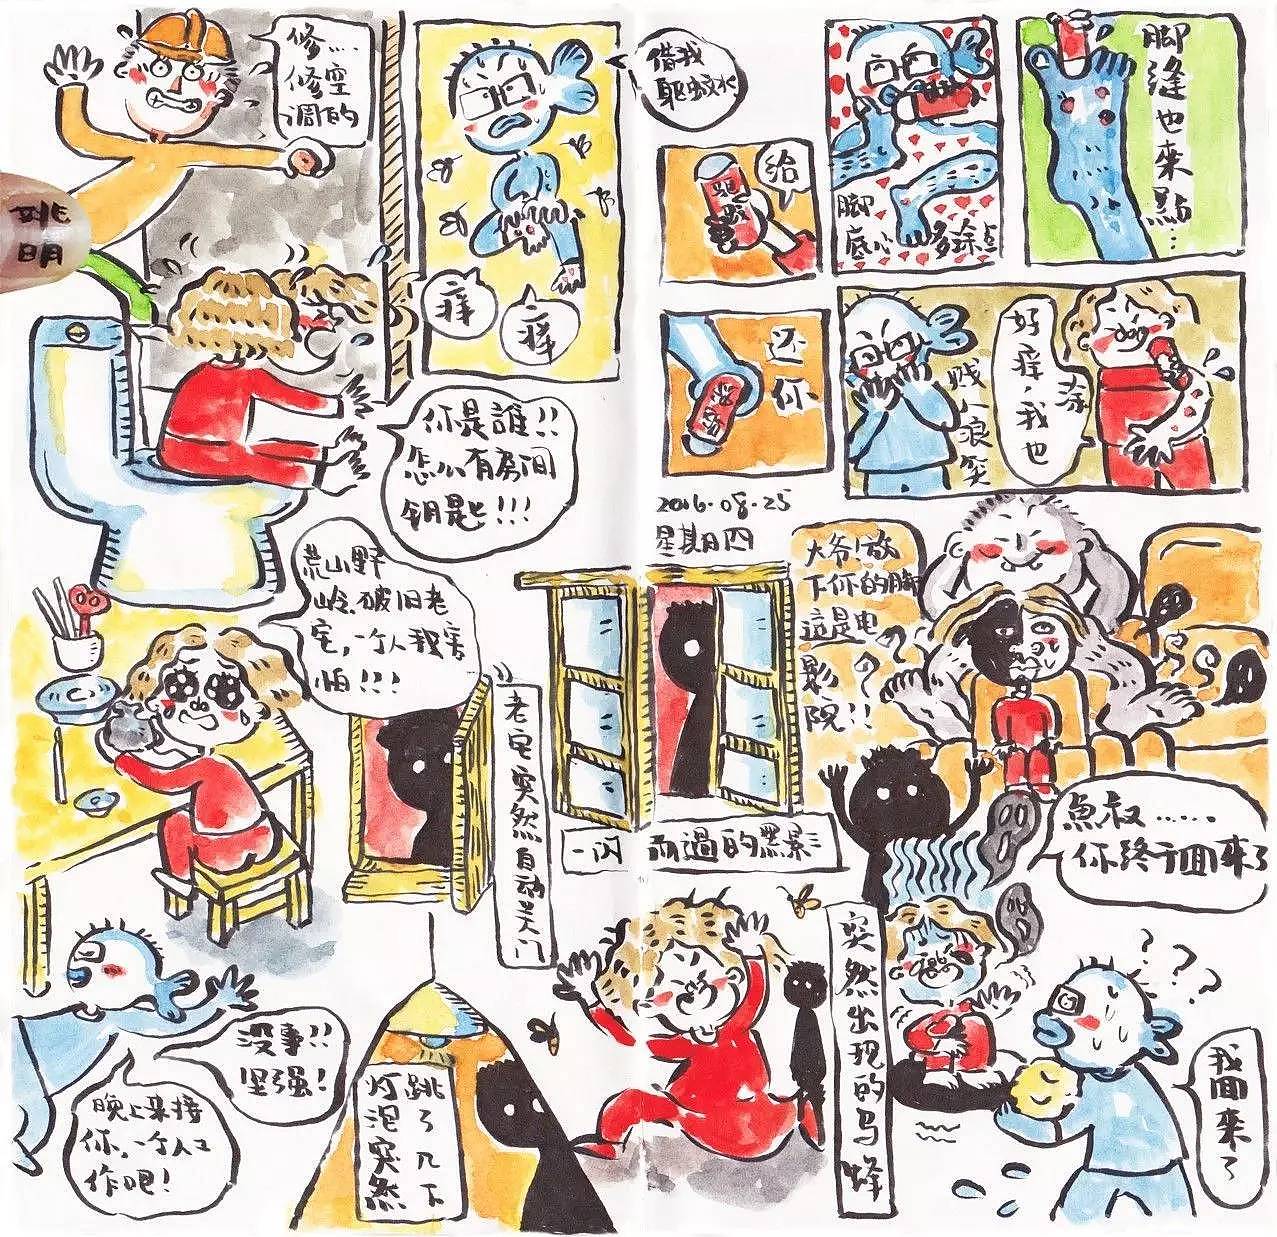 修....
修空
调的
借我
驱蚊水
给
驱蚊
脚
底心多涂点
脚缝也来點...
姚
明
痒
痒
还你
贱人浪笑
好痒,我也
涂
你是誰!!
怎么有房间
钥匙!!!
2016.08.25
星期四
大爷!放
下你的脚
這是电
影
院!!
荒山野
岭、破旧老
宅,一个人我害
怕!!!
老宅突然自动关门
一闪而過的黑影
魚叔......
你终于回来了
没事!!
坚强!
晚上来接
你,一个人工
作吧!
灯泡突然
跳了几下
突然出现的马蜂
???
我回来了